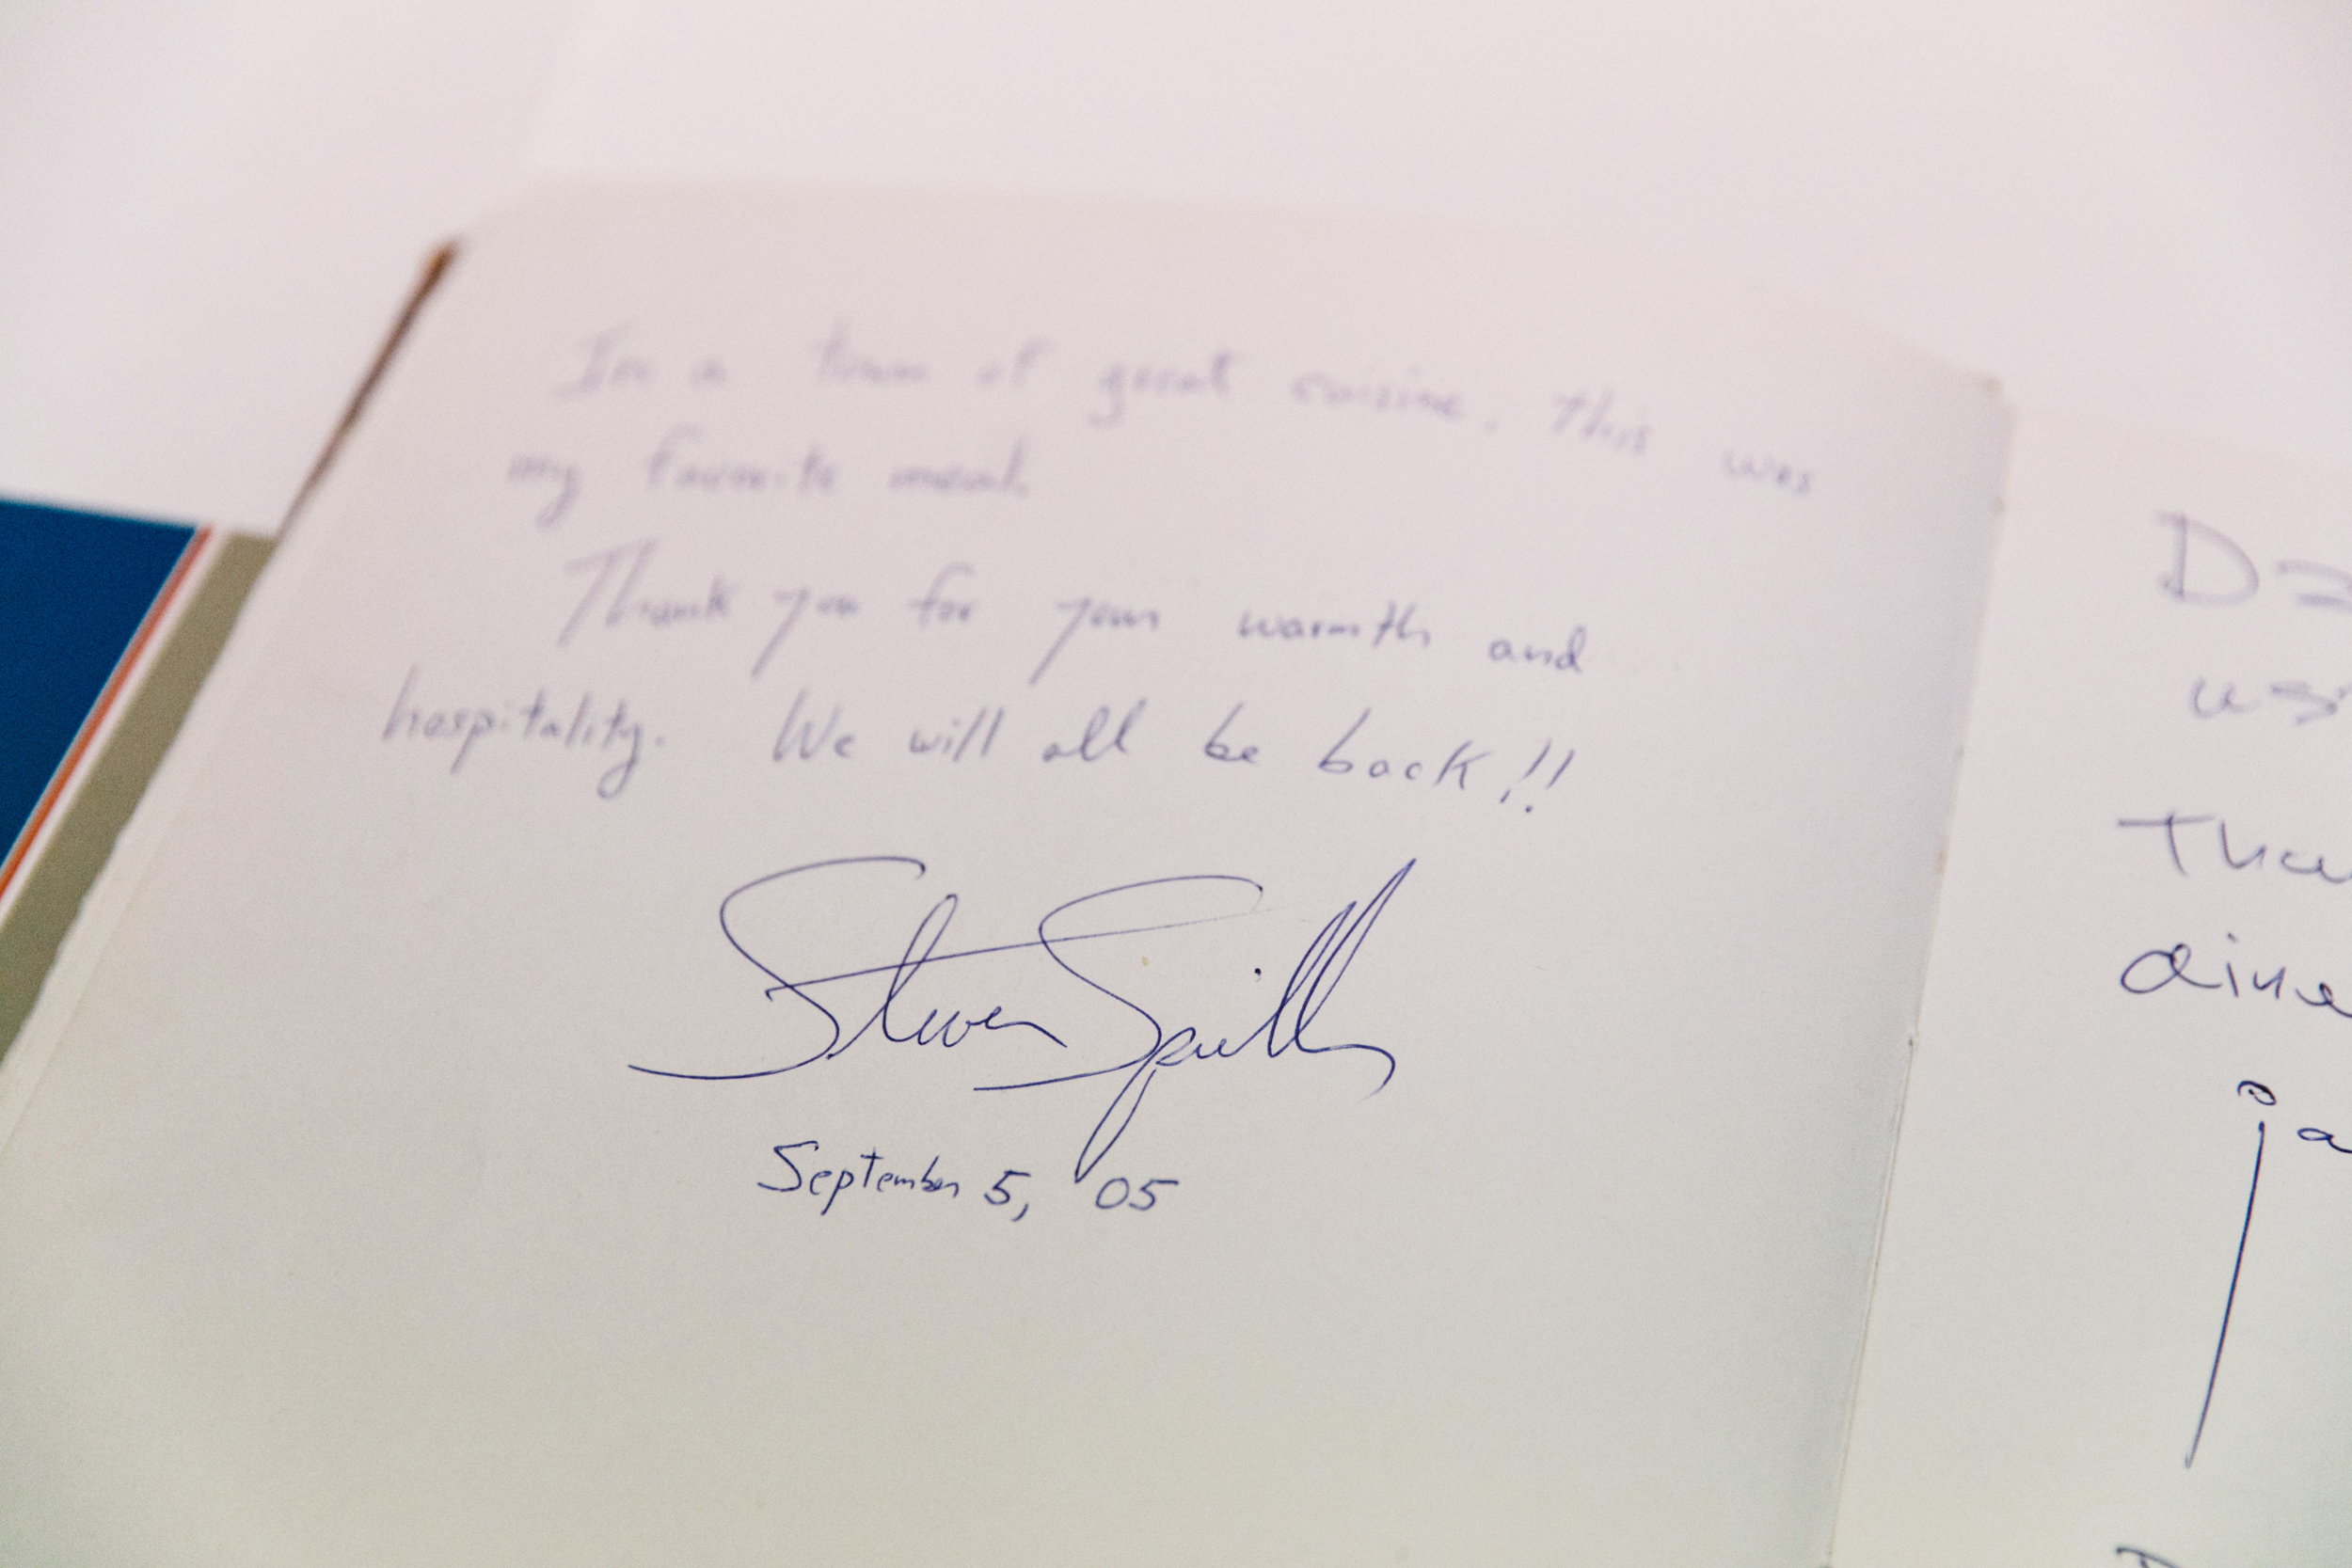 In a town of great cuisine, this was
my favorite meal.
Thank you for your warmth and
hospitality. We will all be back!!
Steven Spielberg
September 5, 05